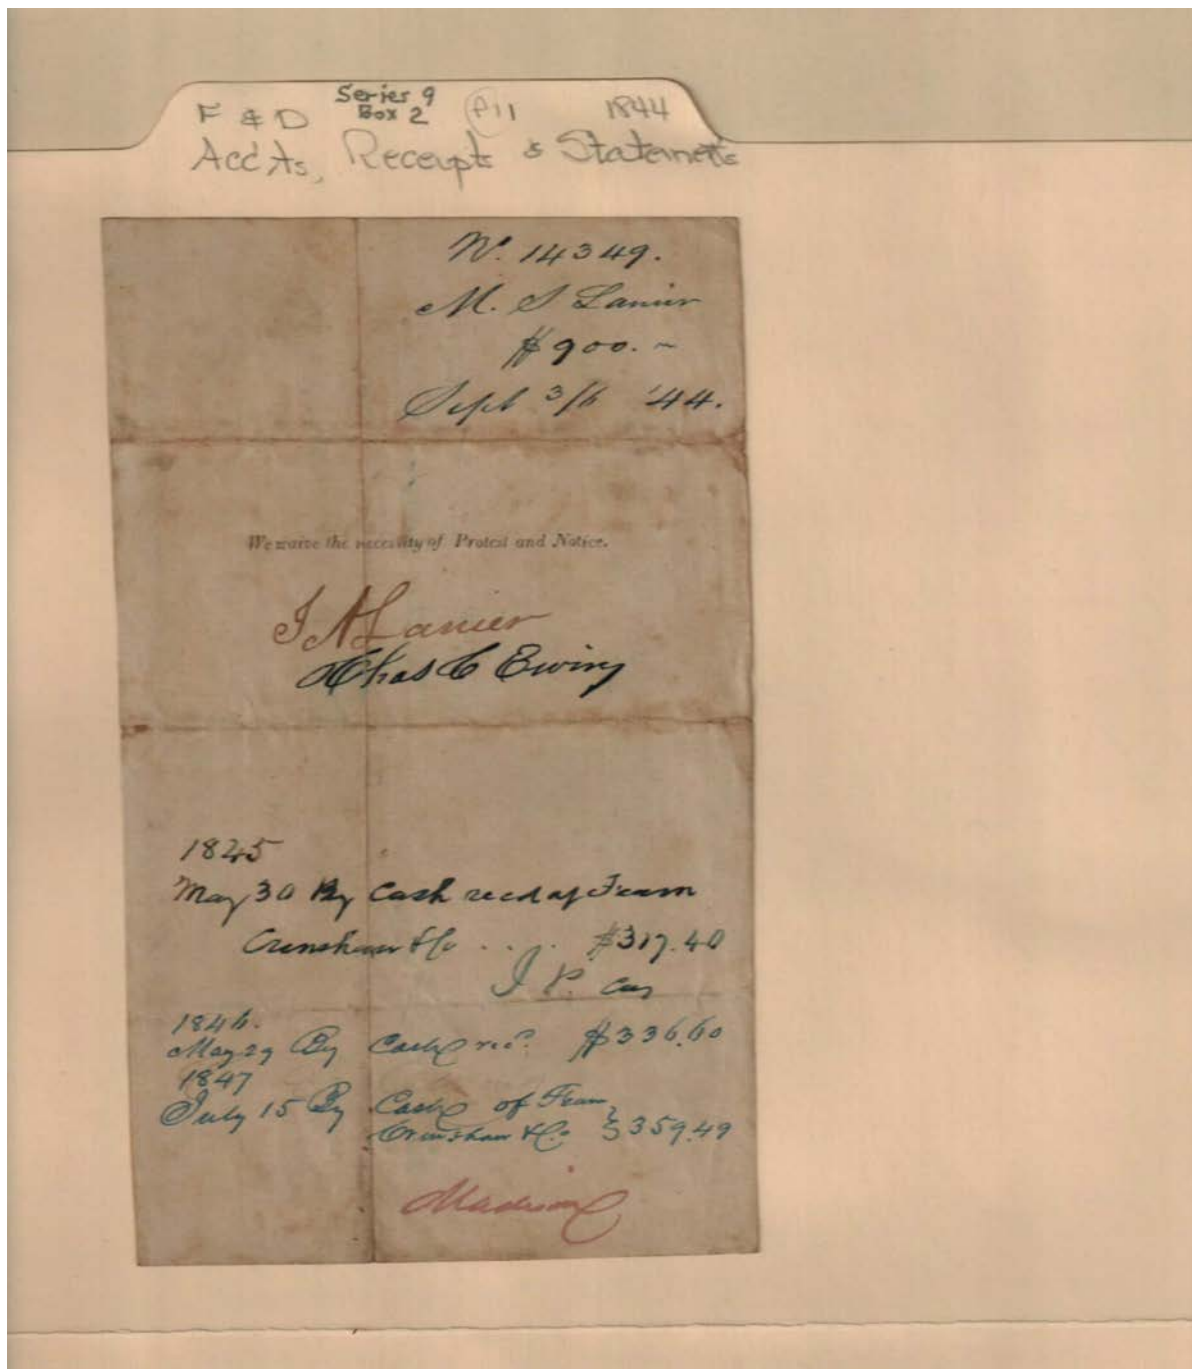 Series 9
F & D Box 2 F11 1844
Acc'ts, Receipts & Statements
No. 14349.
M. S. Lanier
$900.~
Sept 3/6 '44.
We waive the necessity of Protest and Notice.
J A Lanier
Chas C Ewing
1845
May 30 By Cash recd of Fearn
Crenshaw & Co . . . . $317.40
J. P.
1846.
May 29 By Cash recd. $336.60
1847
July 15 By Cash of Fearn
Crinshaw & Co. } 359.49
Madison